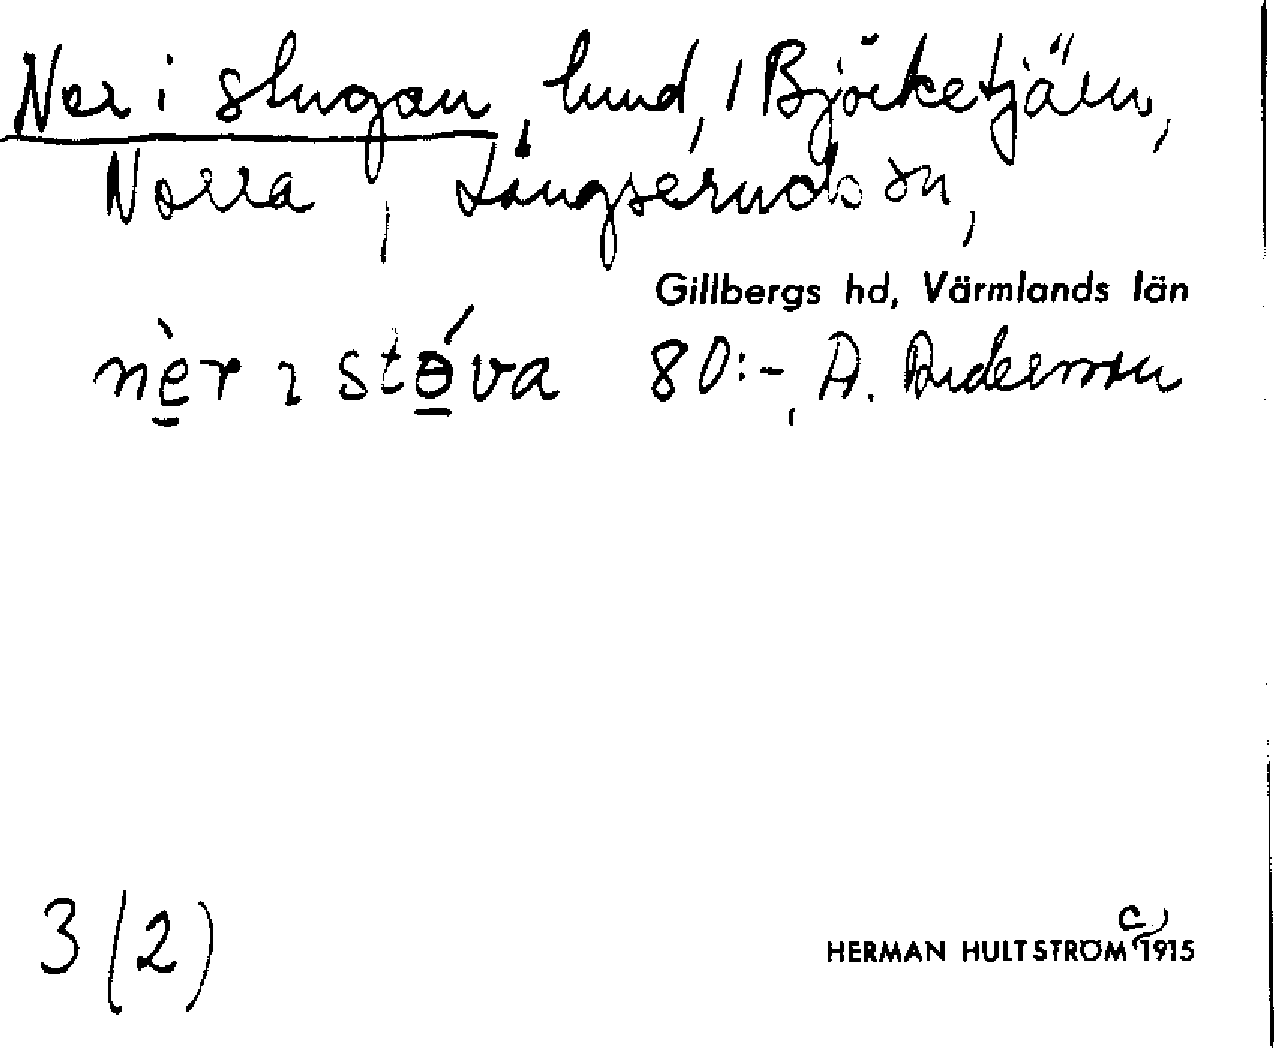 Ner i stugan, hund, i Björketjärn,
Norra, Långseruds sn,
Gillbergs hd, Värmlands län
nè̱r ɩ stɵ̱́va 80:-, A. Andersson
3 (2)
HERMAN HULTSTRÖM c 1915